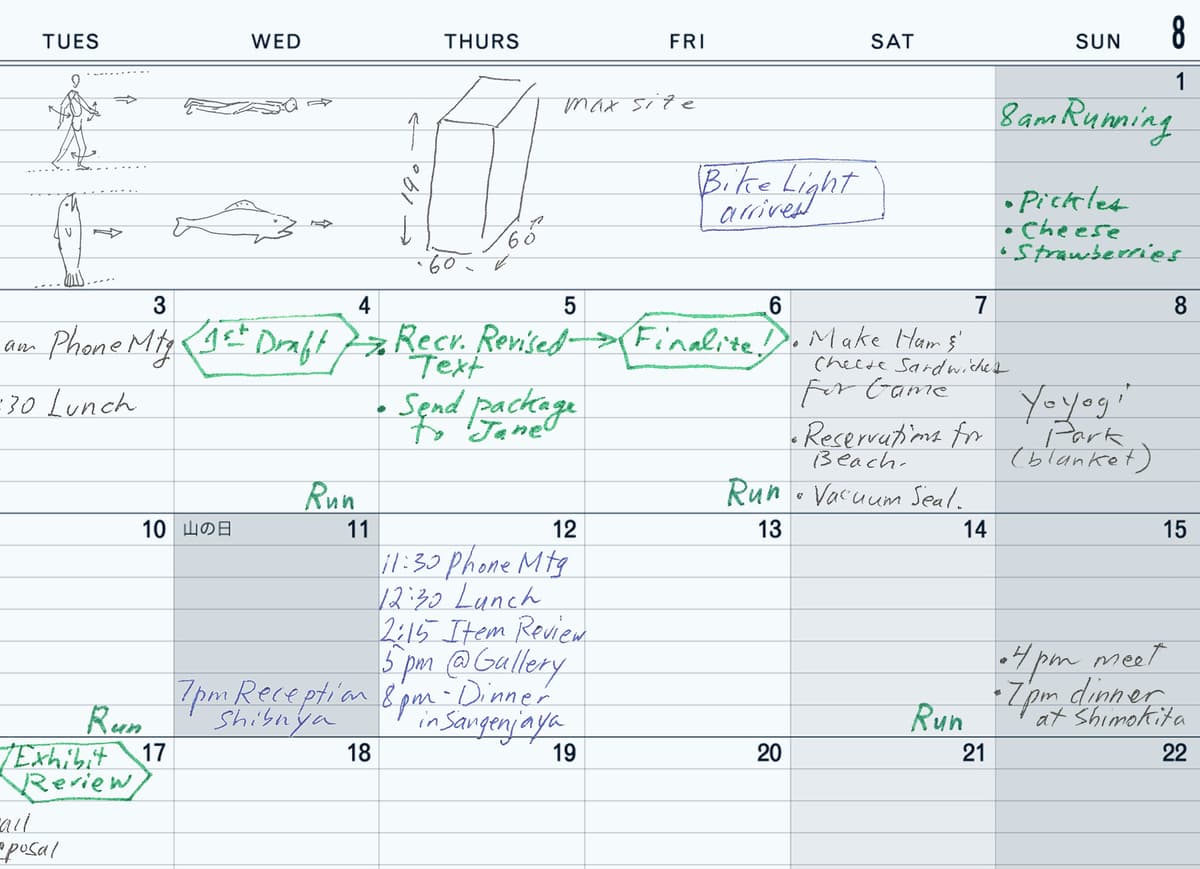 8
TUES
WED
THURS
FRI
SAT
SUN
1
max size
190
60
60
Bike Light
arrives
8am Running
• Pickles
• Cheese
• Strawberries
3
am Phone Mtg
:30 Lunch
4
1st Draft
Run
5
• Recv. Revised
Text
• Send package
to Jane
6
Finalize!
Run
7
• Make Ham &
Cheese Sandwiches
For Game
• Reservations for
Beach.
• Vacuum Seal.
8
Yoyogi
Park
(blanket)
10
Run
山の日
11
7pm Reception
Shibuya
12
11:30 Phone Mtg
12:30 Lunch
2:15 Item Review
5pm @Gallery
8pm - Dinner
in Sangenjaya
13
14
Run
15
• 4pm meet
• 7pm dinner
at Shimokita
17
Exhibit
Review
18
19
20
21
22